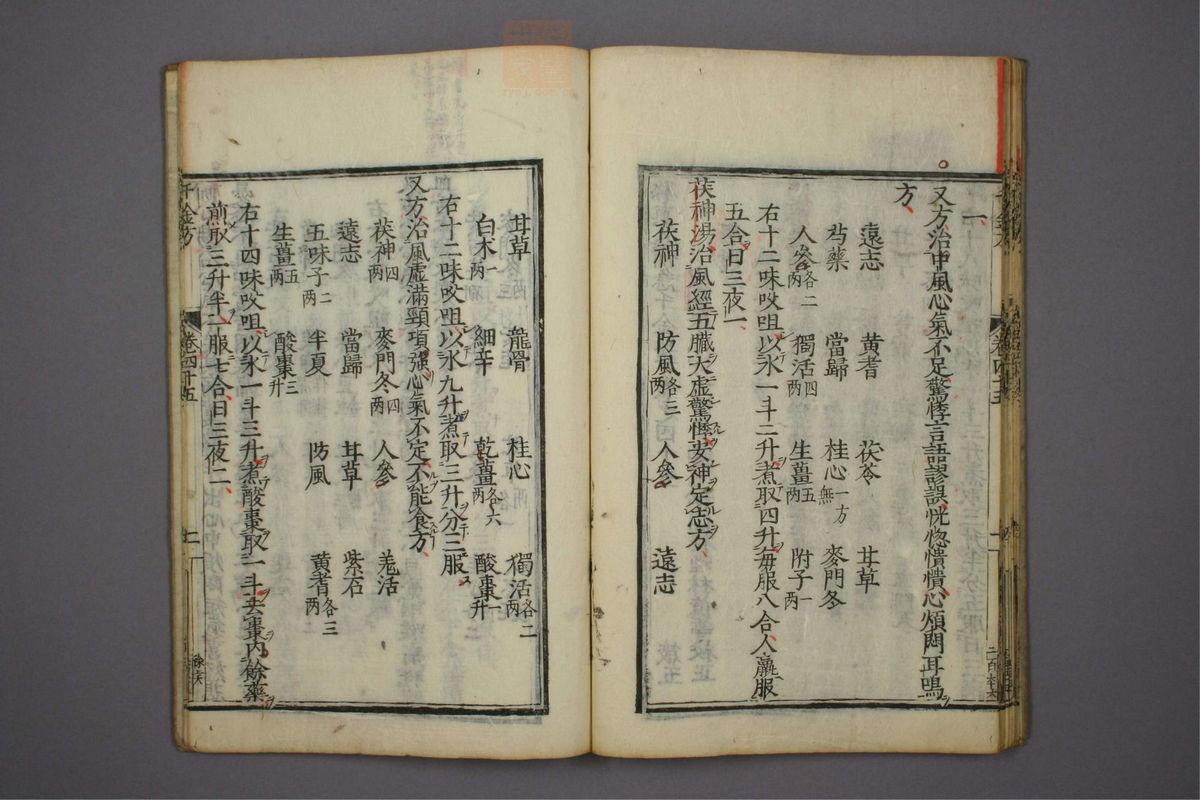 一、
又方治中風心氣不足驚悸言語謬誤恍惚憒憒心煩悶耳鳴
方、
遠志 黃耆 茯苓 甘草
芍藥 當歸 桂心一方無 麥門冬
人參各二兩 獨活四兩 生薑五兩 附子一兩
右十二味㕮咀以水一斗二升煮取四升每服八合人羸服
五合日三夜一、
茯神湯治風經五臟大虛驚悸安神定志方、
茯神 防風各三兩 人參 遠志
甘草 龍骨 桂心 獨活各二兩
白朮一兩 細辛 乾薑各六兩 酸棗一升
右十二味㕮咀以水九升煮取三升分三服
又方治風虛滿頸項強心氣不定不能食方、
茯神四兩 麥門冬四兩 人參 羌活
遠志 當歸 甘草 紫石
五味子二兩 半夏 防風 黃耆各三兩
生薑五兩 酸棗三升
右十四味㕮咀以水一斗三升煮酸棗取一斗去棗內餘藥
煎取三升半一服七合日三夜二、
千金方 卷四十五